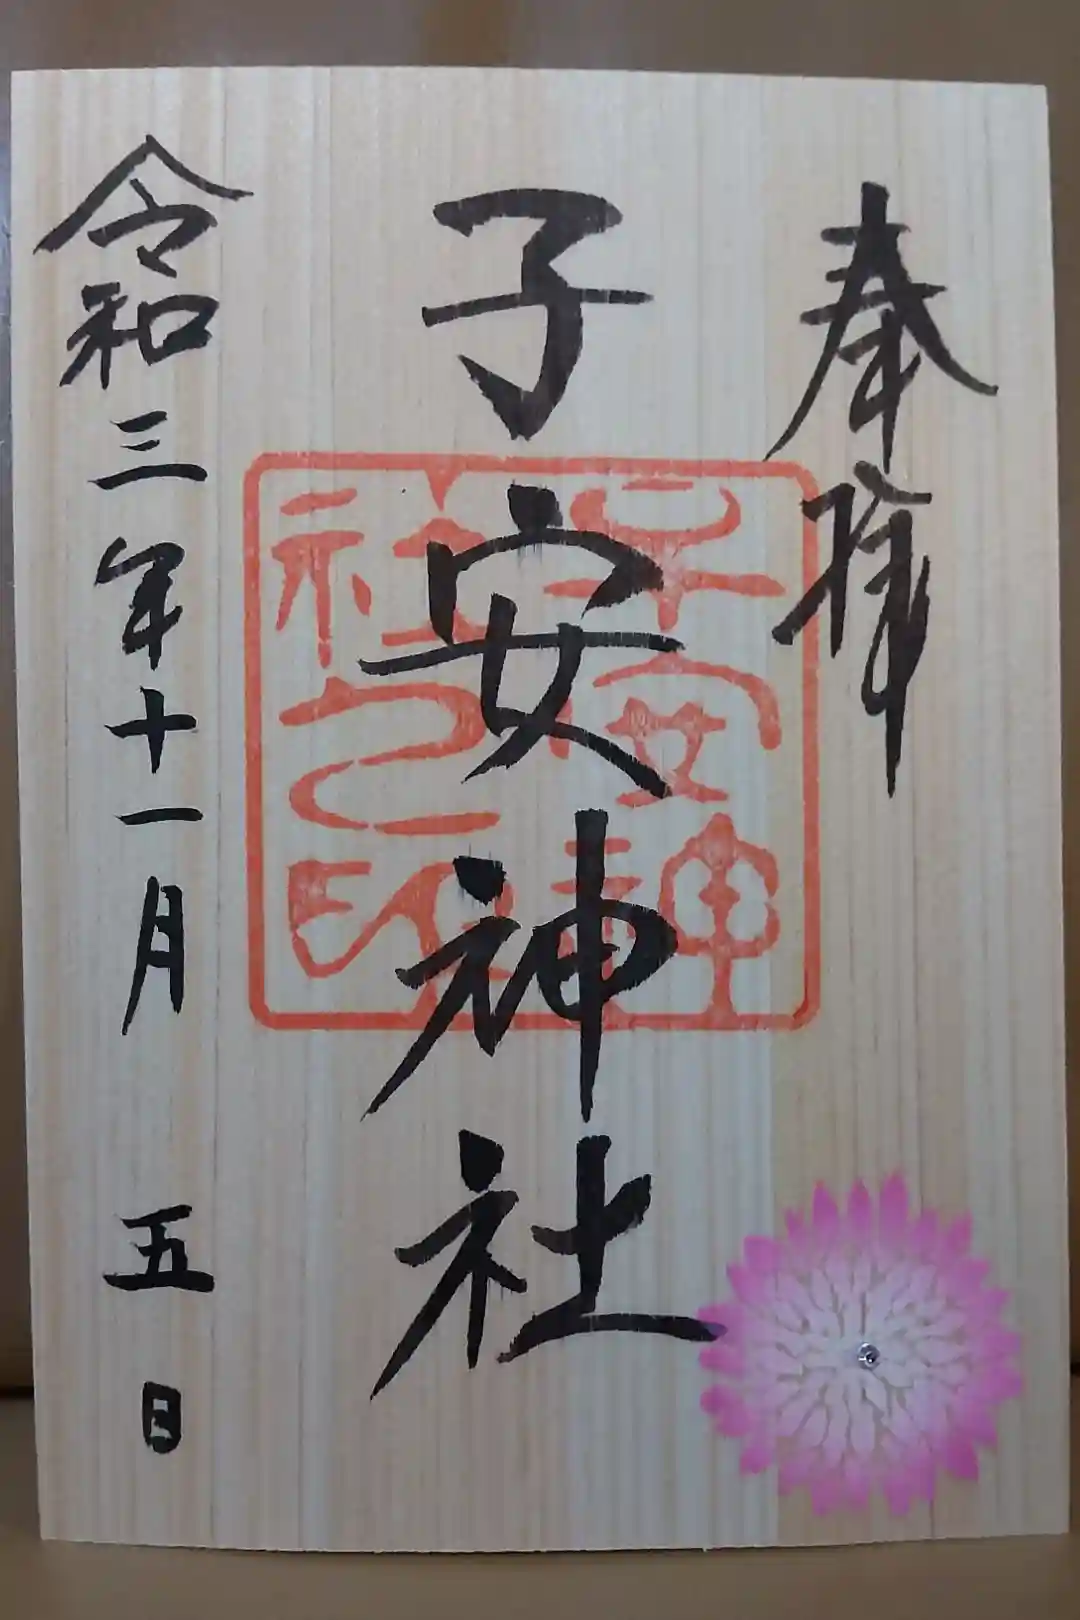 奉拝
子安神社
令和三年十一月五日
子安神
社之印